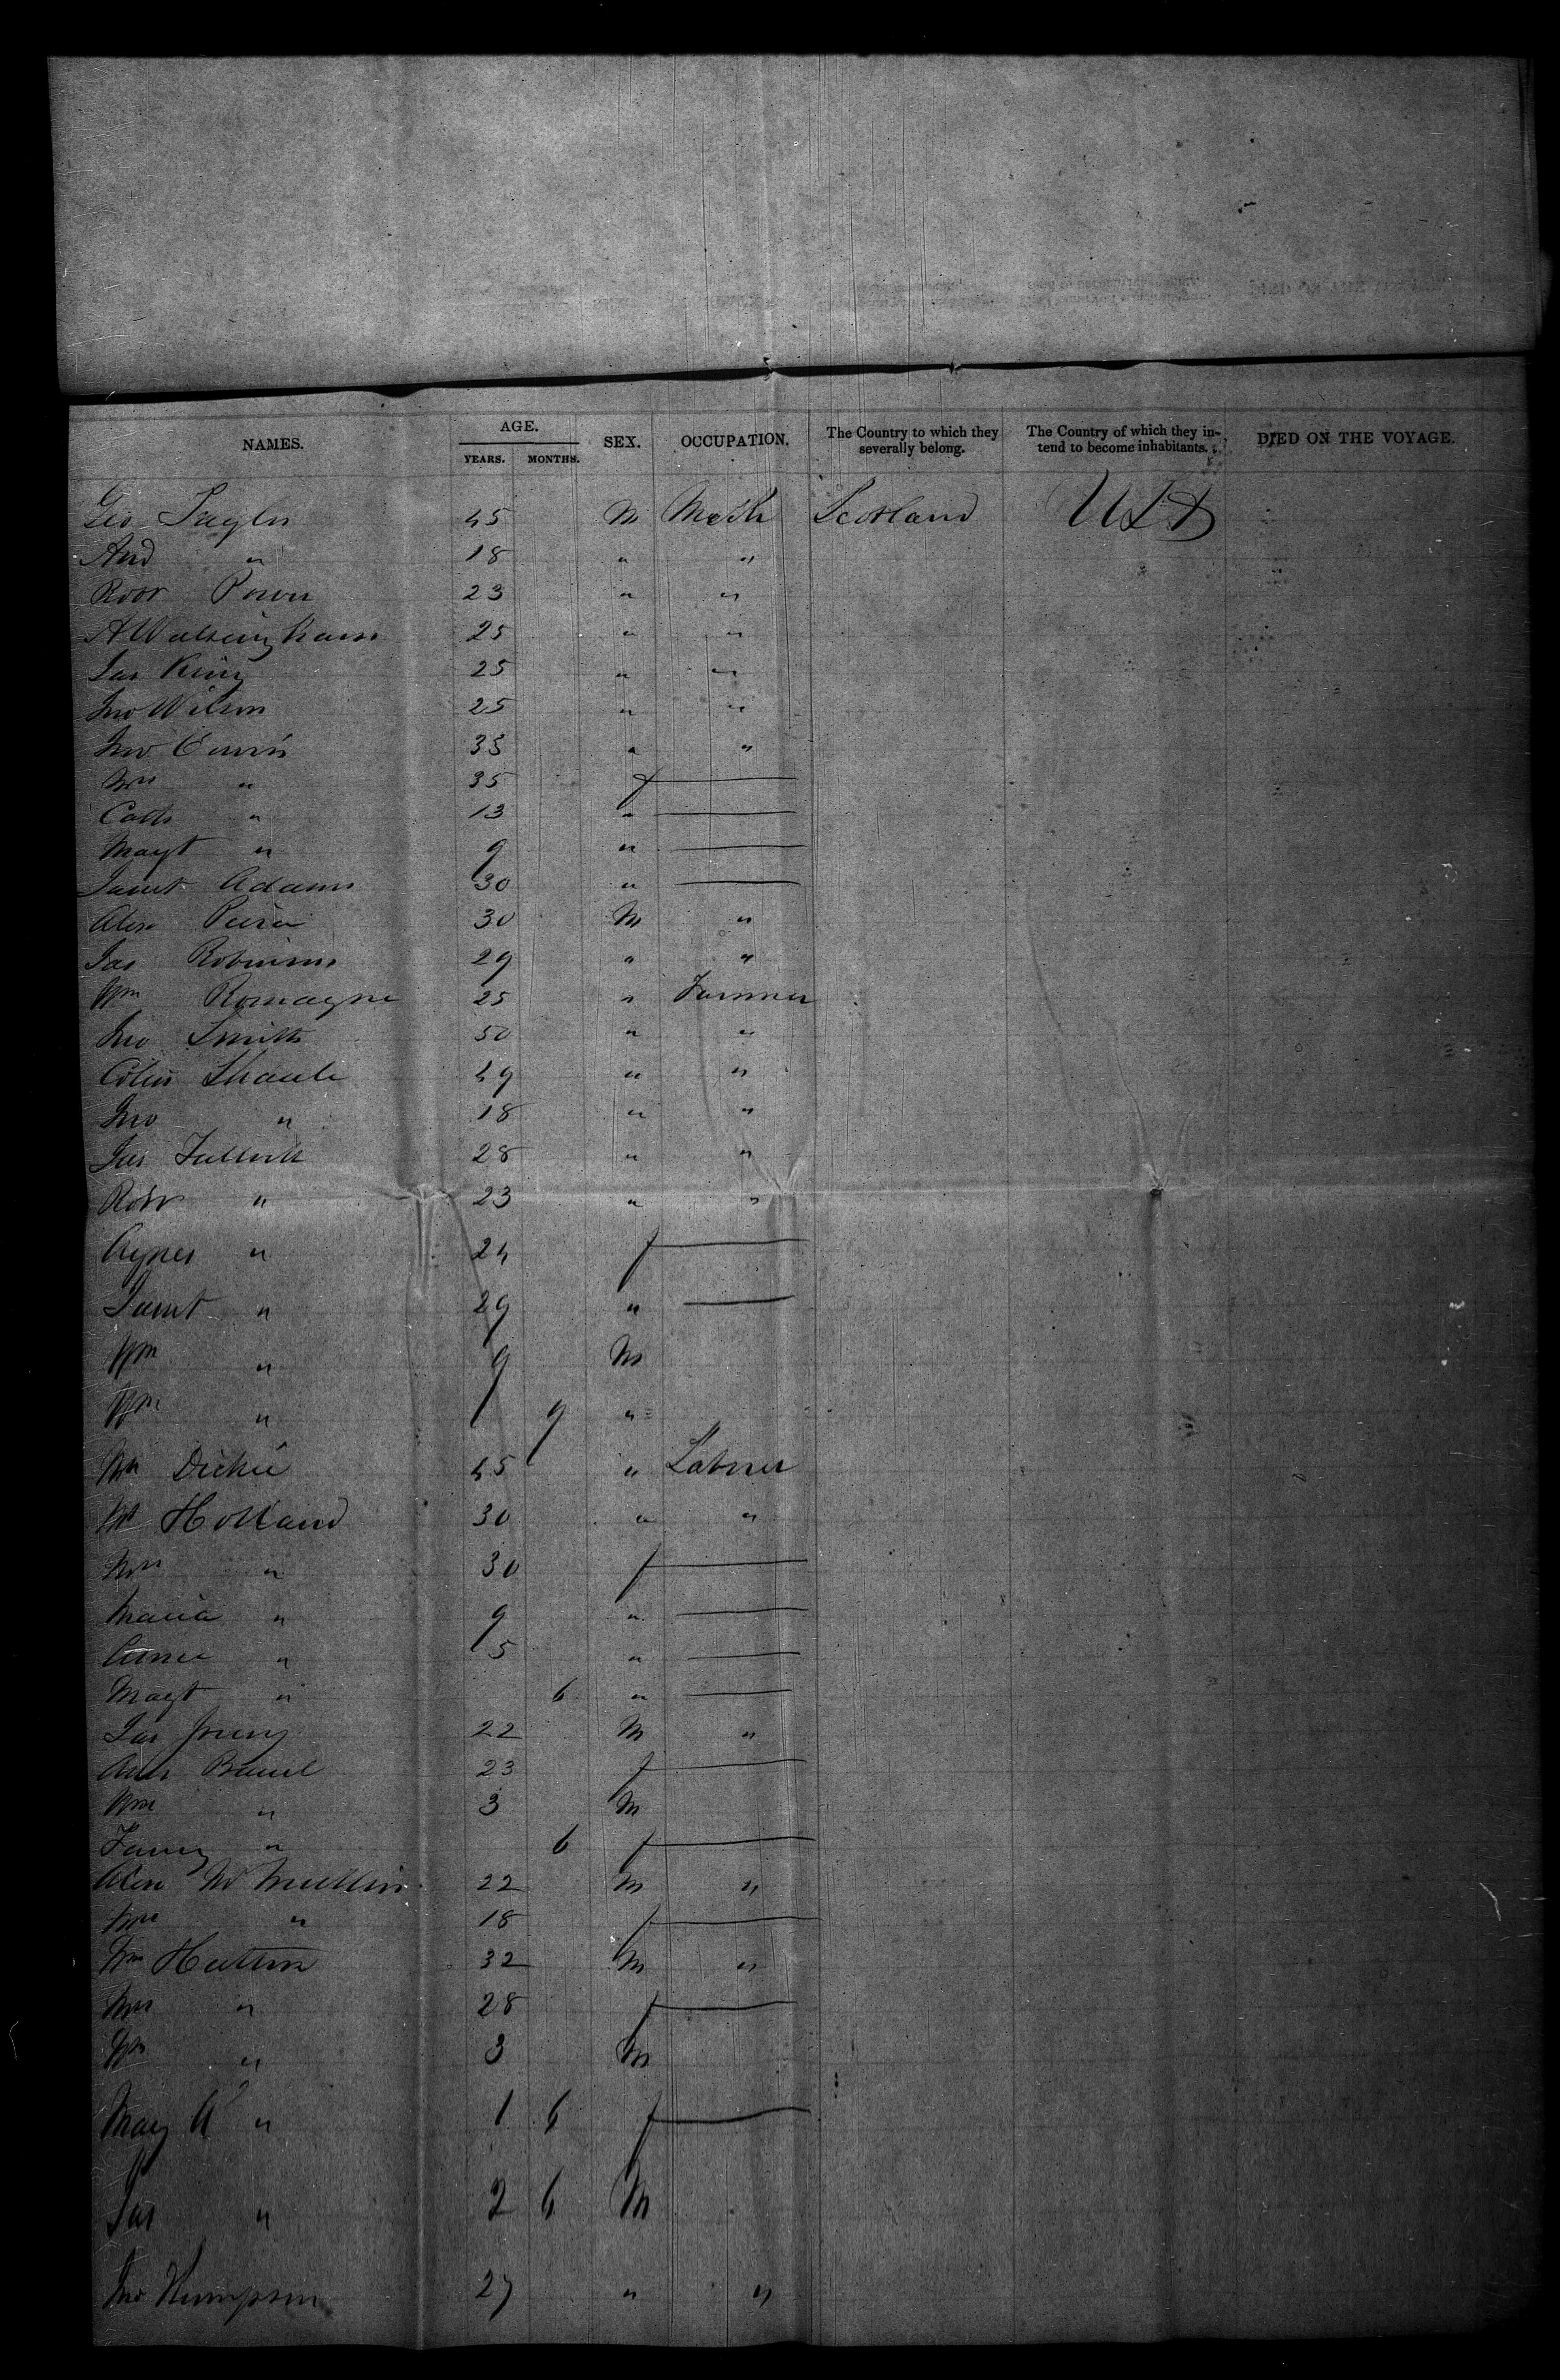 NAMES. AGE. YEARS. MONTHS. SEX. OCCUPATION. The Country to which they severally belong. The Country of which they intend to become inhabitants. DIED ON THE VOYAGE.
Geo Taylor 45 M Mech Scotland USA
And " 18 " "
Robt Power 23 " "
A Walsingham 25 " "
Jas King 25 " "
Jno Wilson 25 " "
Jno 35 " "
Mrs " 35 f
Cath " 13 "
Magt " 9 "
Janet Adams 30 "
Alex 30 M "
Jas Robinson 29 " "
Wm Romayne 25 " Farmer
Jno Smith 50 " "
Colin 49 " "
Jno " 18 " "
Jas 28 " "
Robt " 23 " "
Agnes " 24 f
Janet " 29 "
Wm " 9 M
Wm " 9 "
Dickie 45 " Laborer
Holland 30 " "
Mrs " 30 f
Maria " 9 "
" 5 "
Magt " 6 "
Jas 22 M "
Ann 23 f
Wm " 3 M
Fanny " 6 f
Alex McMullin 22 M "
Mrs " 18 f
Wm Hutton 32 M "
Mrs " 28 f
Wm " 3 M
Mary A " 1 6 f
Jas " 2 6 M
Jno Thompson 27 " "